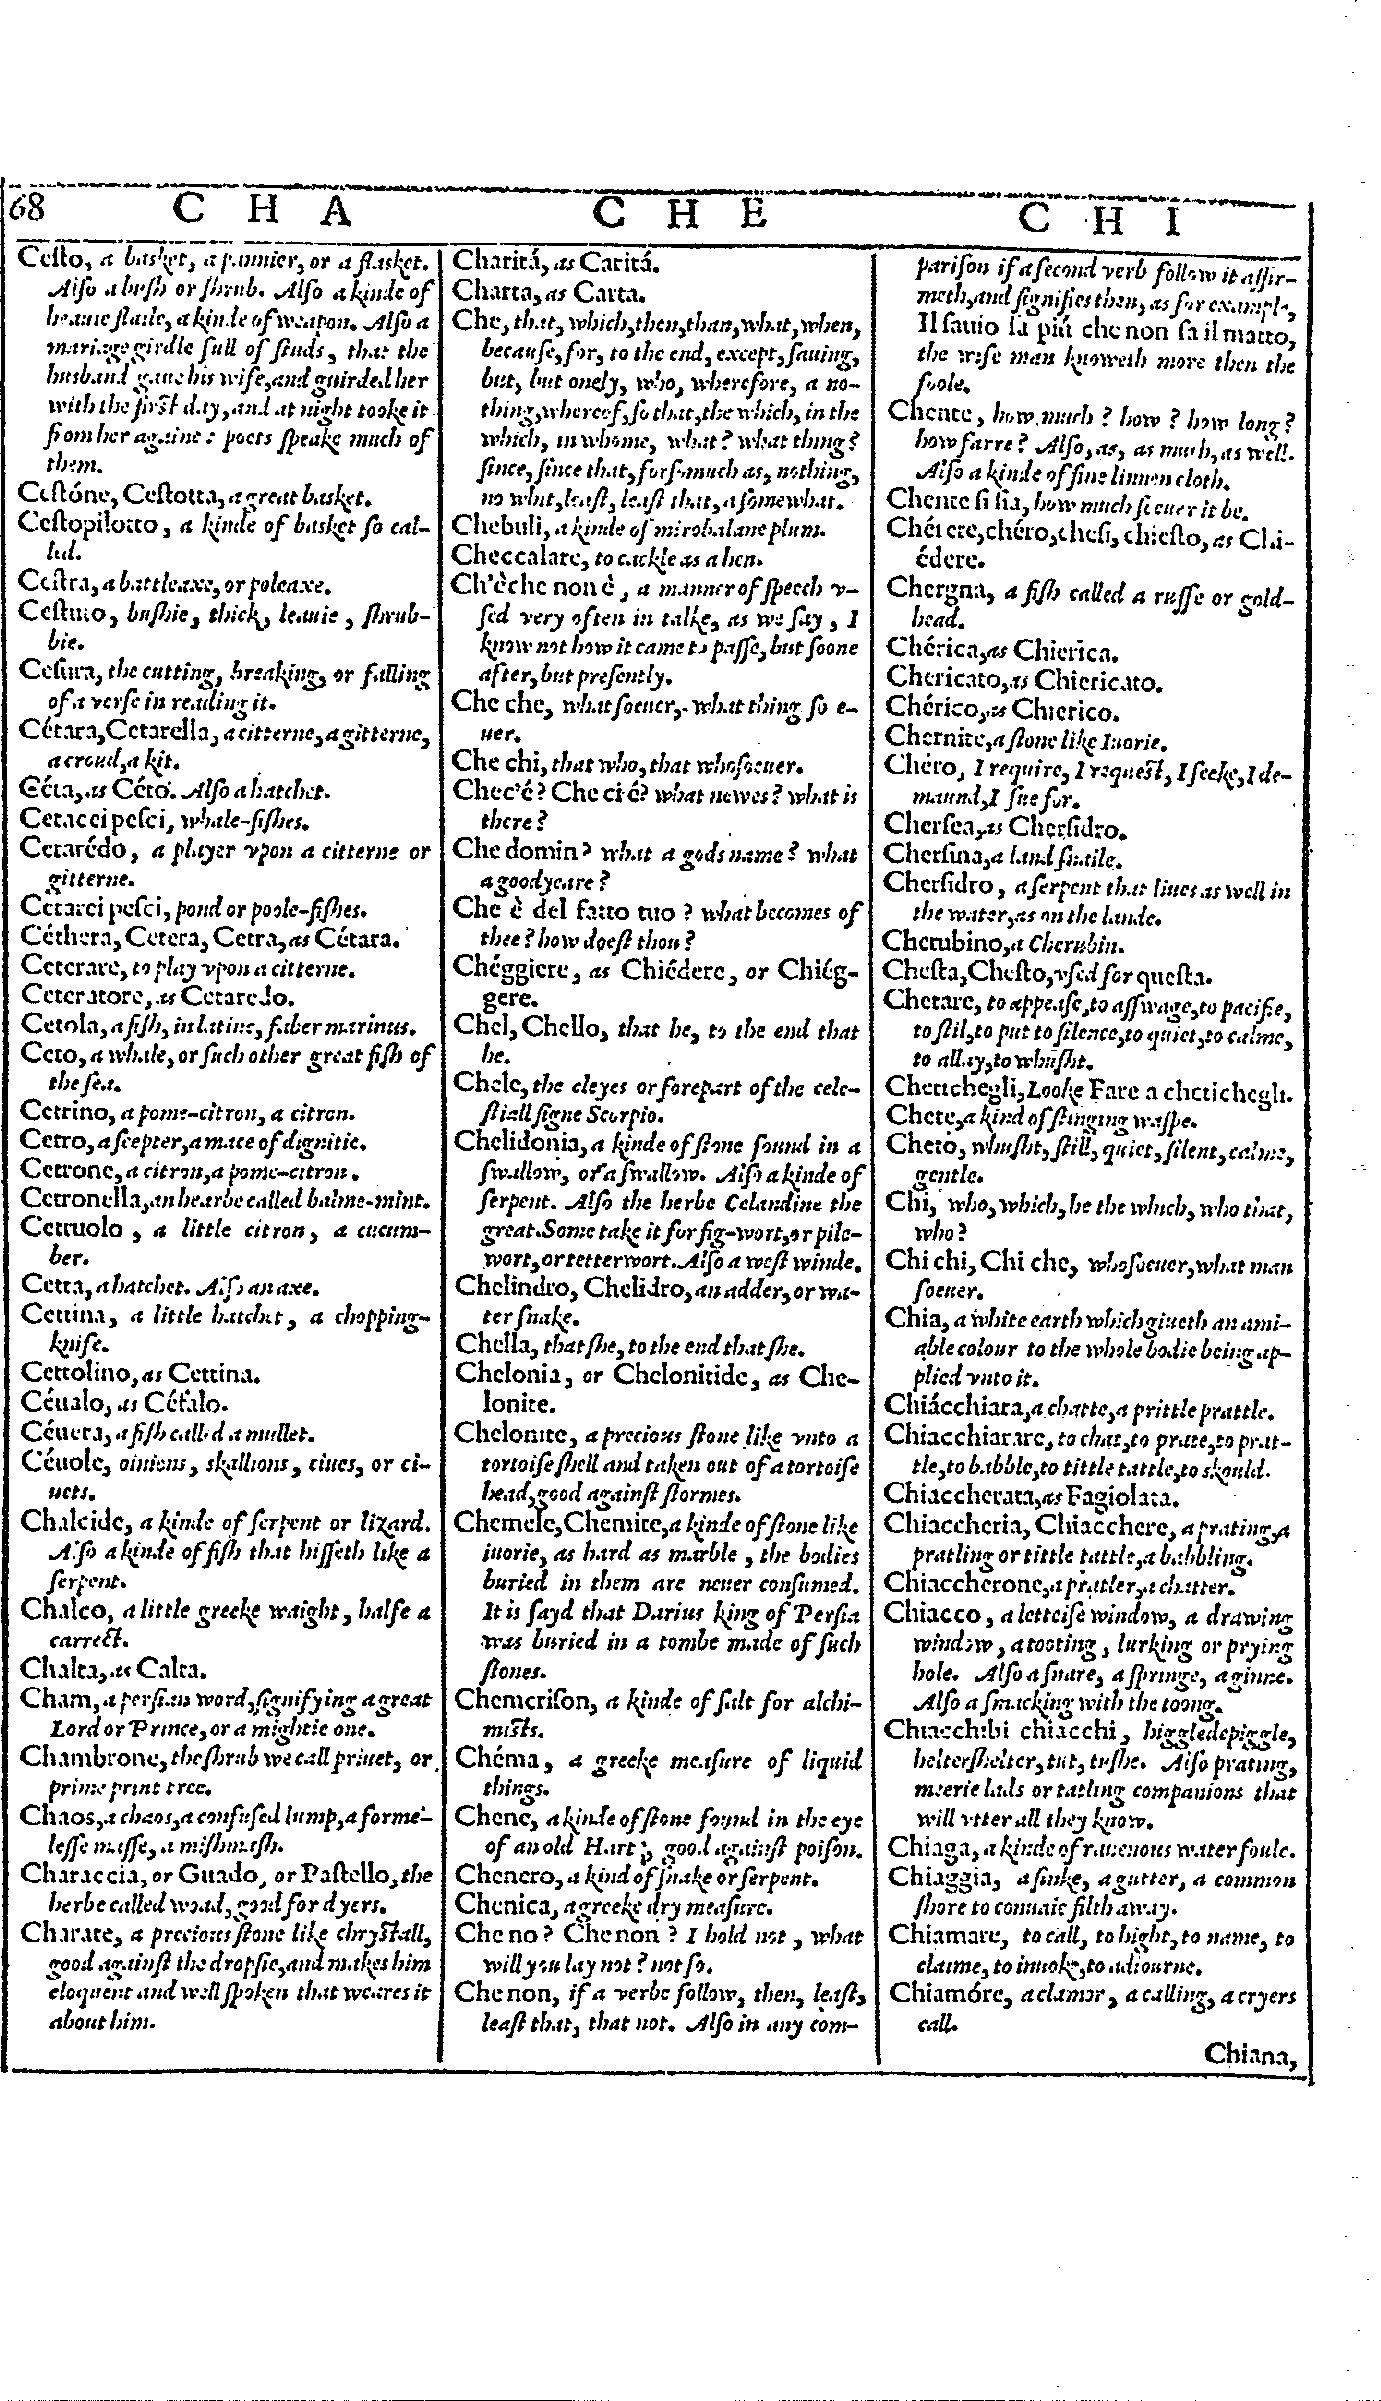 68 C H A C H E C H I
Ceſto, a basket, a pannier, or a flasket.
Alſo a buſh or ſhrub. Alſo a kinde of
heaue flaile, a kinde of weapon. Alſo a
mariage girdle full of ſtuds, that the
husband gaue his wife, and guirded her
with the firſt day, and at night tooke it
from her againe: poets ſpeake much of
them.
Ceſtóne, Ceſtotta, a great basket.
Ceſtopilotto, a kinde of basket ſo cal-
led.
Ceſtra, a battleaxe, or poleaxe.
Ceſtuto, buſhie, thick, leauie, ſhrub-
bie.
Ceſura, the cutting, breaking, or falling
of a verſe in reading it.
Cétara, Cetarella, a citterne, a gitterne,
a croud, a kit.
Céta, as Céto. Alſo a hatchet.
Cetacci peſci, whale-fiſhes.
Cetarédo, a player vpon a citterne or
gitterne.
Cetarci peſci, pond or poole-fiſhes.
Céthera, Cetera, Cetra, as Cétara.
Ceterare, to play vpon a citterne.
Ceteratore, as Cetaredo.
Cetola, a fiſh, in latine, faber marinus.
Ceto, a whale, or ſuch other great fiſh of
the ſea.
Cetrino, a pome-citron, a citron.
Cetro, a ſcepter, a mace of dignitie.
Cetrone, a citron, a pome-citron.
Cetronella, an hearbe called balme-mint.
Cetruolo, a little citron, a cucum-
ber.
Cetta, a hatchet. Alſo an axe.
Cettina, a little hatchet, a chopping-
knife.
Cettolino, as Cettina.
Céualo, as Céfalo.
Céuera, a fiſh called a mullet.
Céuole, oinions, skallions, ciues, or ci-
uets.
Chalcide, a kinde of ſerpent or lizard.
Alſo a kinde of fiſh that hiſſeth like a
ſerpent.
Chalco, a little greeke waight, halfe a
carrect.
Chalta, as Calta.
Cham, a perſian word, ſignifying a great
Lord or Prince, or a mightie one.
Chambrone, the ſhrub we call priuet, or
prime print tree.
Chaos, a chaos, a confuſed lump, a forme-
leſſe maſſe, a miſhmaſh.
Characcia, or Guado, or Paſtello, the
herbe called woad, good for dyers.
Charate, a precious ſtone like chryſtall,
good againſt the dropſie, and makes him
eloquent and well ſpoken that weares it
about him.
Charitá, as Caritá.
Charta, as Carta.
Che, that, which, then, than, what, when,
becauſe, for, to the end, except, ſauing,
but, but onely, who, wherefore, a no-
thing, whereof, ſo that, the which, in the
which, in whome, what? what thing?
ſince, ſince that, forſomuch as, nothing,
no whit, leaſt, leaſt that, a ſomewhat.
Chebuli, a kinde of mirobalane plum.
Checcalare, to cackle as a hen.
Ch'è che non è, a manner of ſpeech v-
ſed very often in talke, as we ſay, I
know not how it came to paſſe, but ſoone
after, but preſently.
Che che, whatſoeuer, what thing ſo e-
uer.
Che chi, that who, that whoſoeuer.
Chec'é? Che ci é? what newes? what is
there?
Che domin? what a gods name? what
a goodyeare?
Che è del fatto tuo? what becomes of
thee? how doeſt thou?
Chéggiere, as Chiédere, or Chiég-
gere.
Chel, Chello, that he, to the end that
he.
Chele, the cleyes or forepart of the cele-
ſtiall ſigne Scorpio.
Chelidonia, a kinde of ſtone found in a
ſwallow, of a ſwallow. Alſo a kinde of
ſerpent. Alſo the herbe Celandine the
great. Some take it for fig-wort, or pile-
wort, or tetterwort. Alſo a weſt winde.
Chelindro, Chelidro, an adder, or wa-
ter ſnake.
Chella, that ſhe, to the end that ſhe.
Chelonia, or Chelonitide, as Che-
lonite.
Chelonite, a precious ſtone like vnto a
tortoiſe ſhell and taken out of a tortoiſe
head, good againſt ſtormes.
Chemele, Chemite, a kinde of ſtone like
iuorie, as hard as marble, the bodies
buried in them are neuer conſumed.
It is ſayd that Darius king of Perſia
was buried in a tombe made of ſuch
ſtones.
Chemeriſon, a kinde of ſalt for alchi-
miſts.
Chéma, a greeke meaſure of liquid
things.
Chene, a kinde of ſtone found in the eye
of an old Hart, good againſt poiſon.
Chenero, a kind of ſnake or ſerpent.
Chenica, a greeke dry meaſure.
Che no? Che non? I hold not, what
will you lay not? not ſo.
Che non, if a verbe follow, then, leaſt,
leaſt that, that not. Alſo in any com-
pariſon if a ſecond verb follow it affir-
meth, and ſignifies then, as for example,
Il ſauio ſa piú che non ſa il matto,
the wiſe man knoweth more then the
foole.
Chente, how much? how? how long?
how farre? Alſo, as, as much, as well.
Alſo a kinde of fine linnen cloth.
Chente ſi ſia, how much ſo euer it be.
Chérere, chéro, cheſi, chieſto, as Chi-
édere.
Chergna, a fiſh called a ruffe or gold-
head.
Chérica, as Chierica.
Chericato, as Chiericato.
Chérico, as Chierico.
Chernite, a ſtone like Iuorie.
Chéro, I require, I requeſt, I ſeeke, I de-
maund, I ſue for.
Cherſea, as Cherſidro.
Cherſina, a land ſnaile.
Cherſidro, a ſerpent that liues as well in
the water, as on the lande.
Cherubino, a Cherubin.
Cheſta, Cheſto, vſed for queſta.
Chetare, to appeaſe, to aſſwage, to pacifie,
to ſtil, to put to ſilence, to quiet, to calme,
to allay, to whuſht.
Chetichegli, Looke Fare a chetichegli.
Chete, a kind of ſtinging waſpe.
Cheto, whuſht, ſtill, quiet, ſilent, calme,
gentle.
Chi, who, which, he the which, who that,
who?
Chi chi, Chi che, whoſoeuer, what man
ſoeuer.
Chia, a white earth which giueth an ami-
able colour to the whole bodie being ap-
plied vnto it.
Chiácchiara, a chatte, a prittle prattle.
Chiacchiarare, to chat, to prate, to prat-
tle, to babble, to tittle tattle, to skould.
Chiaccherata, as Fagiolata.
Chiaccheria, Chiacchere, a prating, a
pratling or tittle tattle, a babbling.
Chiaccherone, a pratler, a chatter.
Chiacco, a lettciſe window, a drawing
window, a tooting, lurking or prying
hole. Alſo a ſnare, a ſpringe, a ginne.
Alſo a ſmacking with the toong.
Chiacchibi chiacchi, higgledepiggle,
helterſhelter, tut, tuſhe. Alſo prating,
meerie lads or tatling companions that
will vtter all they know.
Chiaga, a kinde of rauenous water foule.
Chiaggia, a ſinke, a gutter, a common
ſhore to conuaie filth away.
Chiamare, to call, to hight, to name, to
claime, to inuoke, to adiourne.
Chiamóre, a clamor, a calling, a cryers
call.
Chiana,